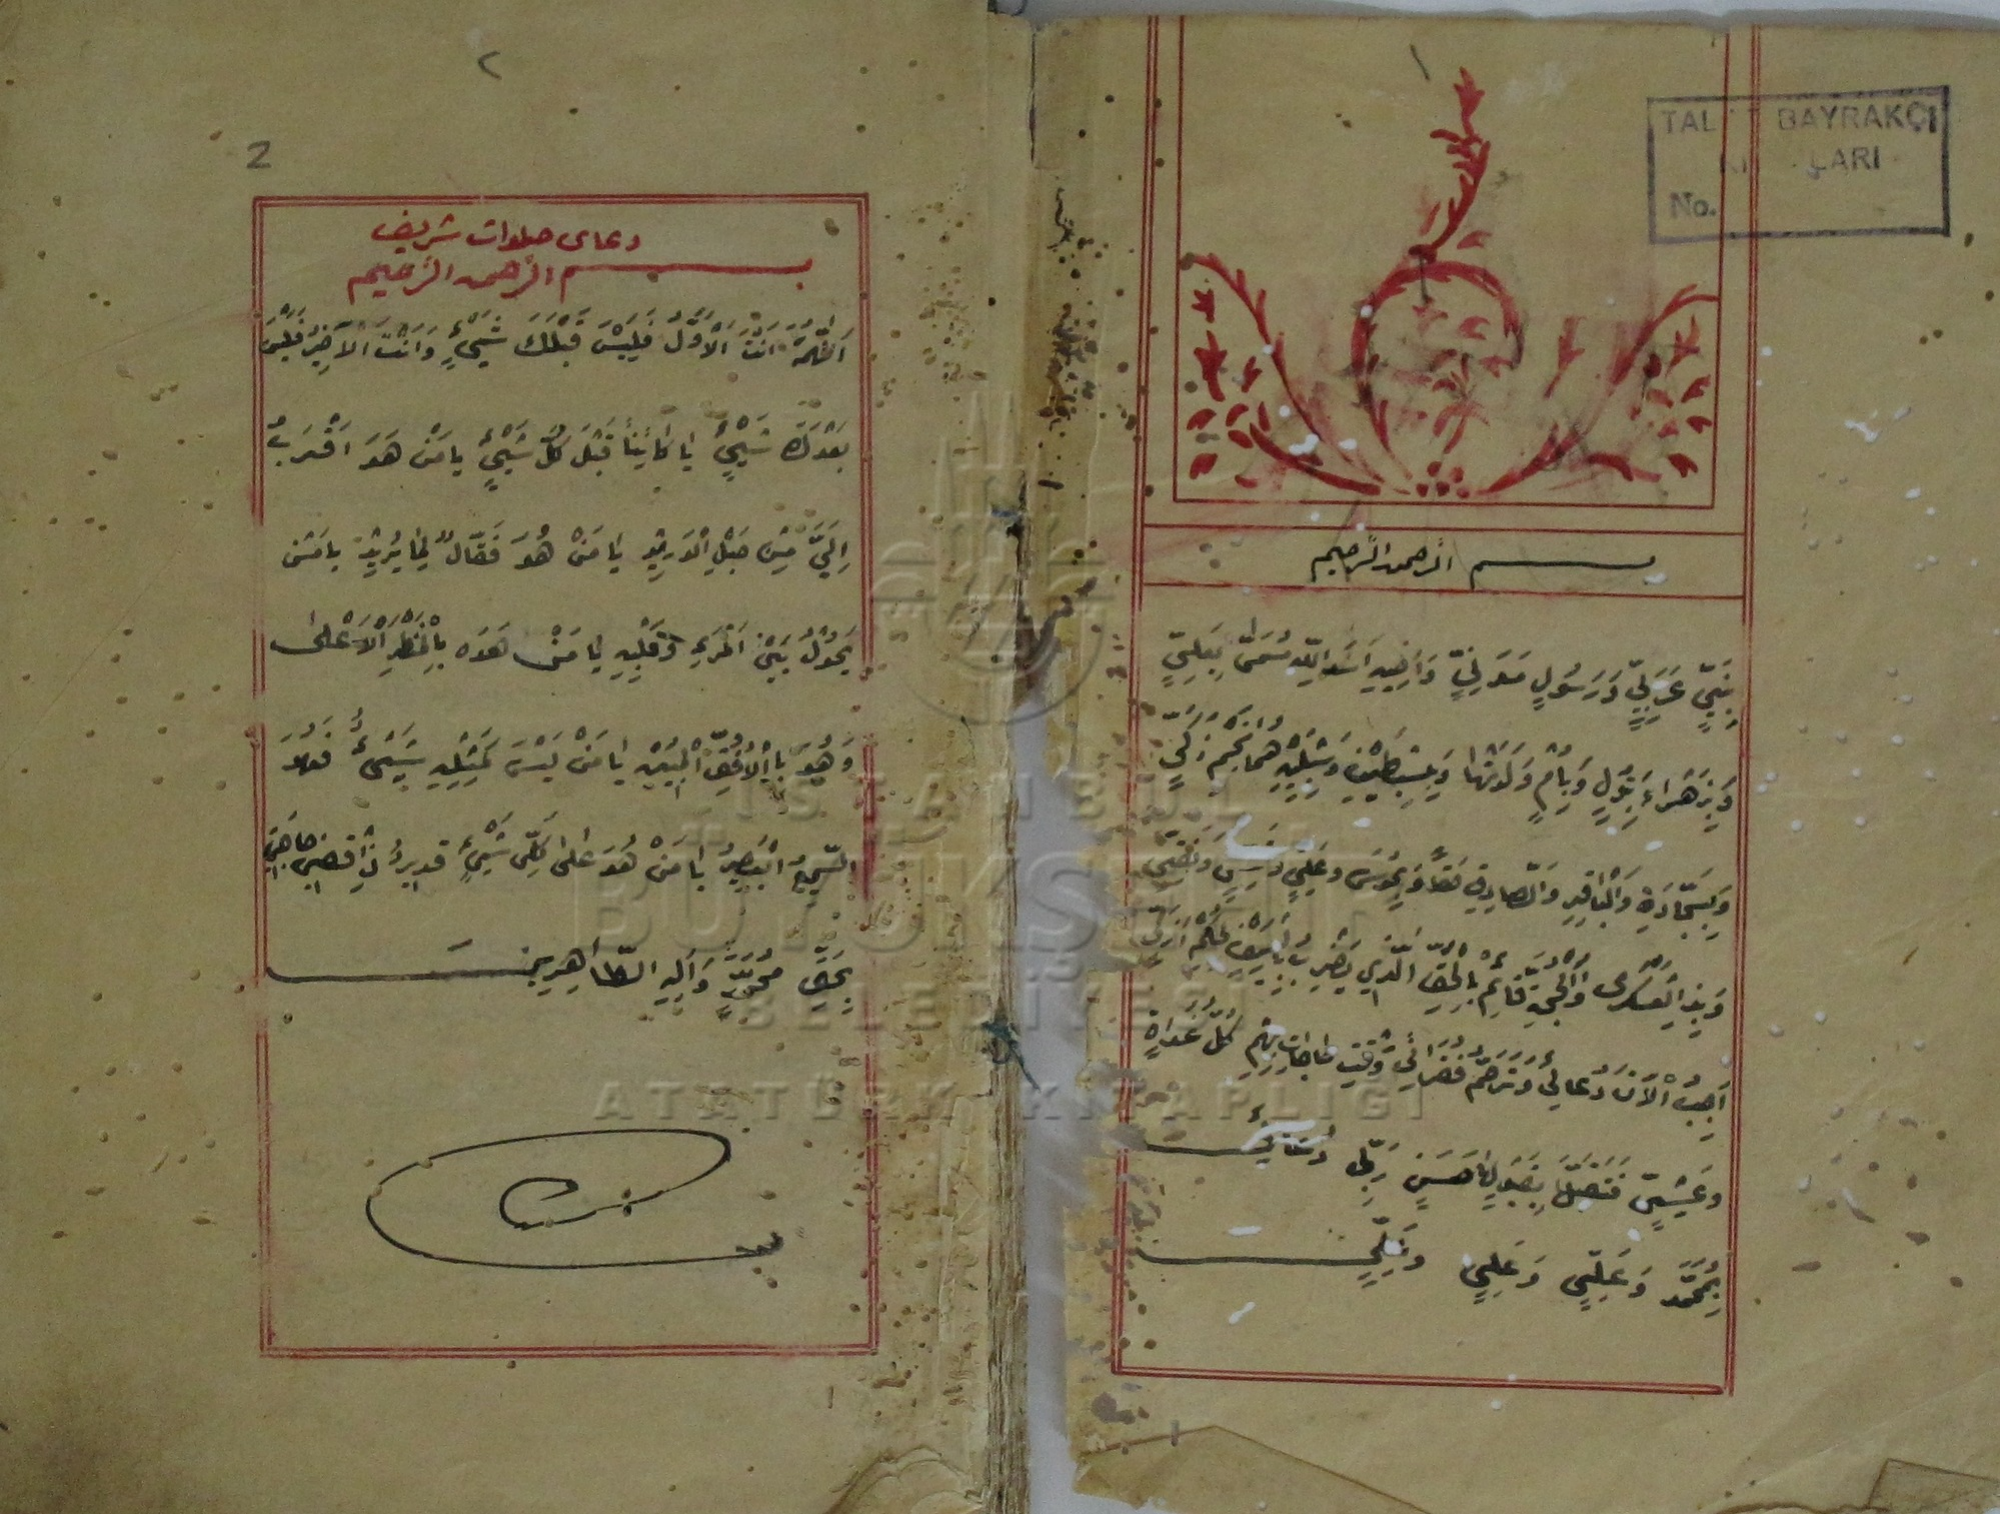 TAL BAYRAKÇI
LARI
No.
بسم الرحمن الرحيم
بِنَبِيٍّ عَرَبِيٍّ وَرَسُولٍ مَدَنِيٍّ وَاَخِيهِ اَسَدِ اللّٰهِ مُسَمّٰى بِعَلِيٍّ
وَبِزَهْرَاءِ بَتُولٍ وَبِاُمٍّ وَلَدَتْهَا وَبِسِبْطَيْنِ وَشِبْلَيْنِ هُمَا نَجْمُ زَكِيٍّ
وَبِسَجَّادَةِ وَالْبَاقِرِ وَالصَّادِقِ حَقًّا وَبِمُوسَى وَعَلِيٍّ وَتَقِيٍّ وَنَقِيٍّ
وَبِذِ الْعَسْكَرى وَالْحُجَّةِ قَائِمْ بِالْحَقِّ الَّذِي يَضْرِبُ بِالسَّيْفِ بِحُكْمٍ اَزَلِيٍّ
اَجِبِ الْاٰنَ دُعَائِي وَتَرَحَّمْ فُقَرَائِي وَقْتِ حَاجَاتِهِمْ كُلَّ غَدَاةٍ
وَعَشِيٍّ فَتَقَبَّلْ بِقَبُولٍ حَسَنٍ رَبِّ دُعَائِي
بِمُحَمَّدٍ وَعَلِيٍّ وَعَلِيٍّ وَعَلِيٍّ
٢
2
دعاى صلوات شريف
بسم الرحمن الرحيم
اَللّٰهُمَّ اَنْتَ الْاَوَّلُ فَلَيْسَ قَبْلَكَ شَيْئٍ وَاَنْتَ الْاٰخِرُ فَلَيْسَ
بَعْدَكَ شَيْئٍ يَا كَائِنًا قَبْلَ كُلِّ شَيْئٍ يَا مَنْ هَوَ اَقْرَبُ
اِلَيَّ مِنْ حَبْلِ الْوَرِيدِ يَا مَنْ هُوَ فَعَّالٌ لِمَا يُرِيدُ يَا مَنْ
يَحُولُ بَيْنَ الْمَرْءِ وَقَلْبِهِ يَا مَنْ هَوَه بِالْمَنْظَرِ الْاَعْلى
وَهُوَ بِالْاُفُقِ الْمُبِينِ يَا مَنْ لَيْسَ كَمِثْلِهِ شَيْئٌ وَهُوَ
السَّمِيعُ الْبَصِيرُ يَا مَنْ هُوَ عَلٰى كُلِّ شَيْئٍ قَدِيرٌ اِقْضِ حَاجَتِي
بِحَقِّ مُحَمَّدٍ وَآلِهِ الطَّاهِرِينَ
İSTANBUL
BÜYÜKŞEHİR
BELEDİYESİ
ATATÜRK KİTAPLIĞI